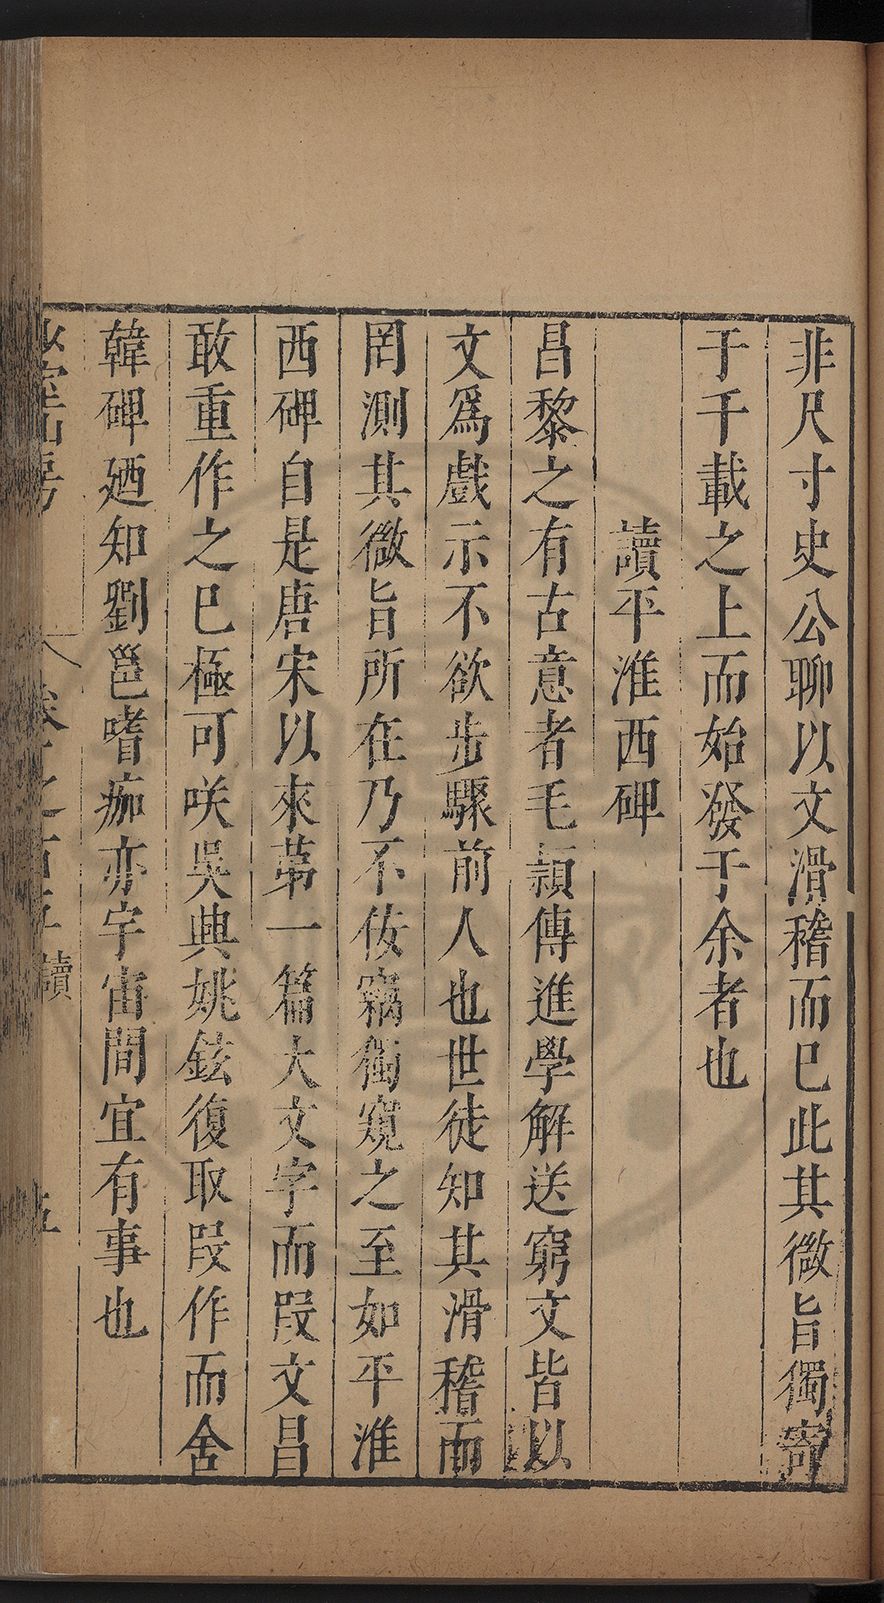 非尺寸史公聊以文滑稽而已此其微旨獨寄
于千載之上而始發于余者也
讀平淮西碑
昌黎之有古意者毛穎傳進學解送窮文皆以
文爲戲示不欲步驟前人也世徒知其滑稽而
罔測其微旨所在乃不佞竊獨窺之至如平淮
西碑自是唐宋以來第一篇大文字而段文昌
敢重作之已極可咲吳興姚鉉復取段作而舍
韓碑廼知劉邕嗜痂亦宇宙間宜有事也
山房
讀
五